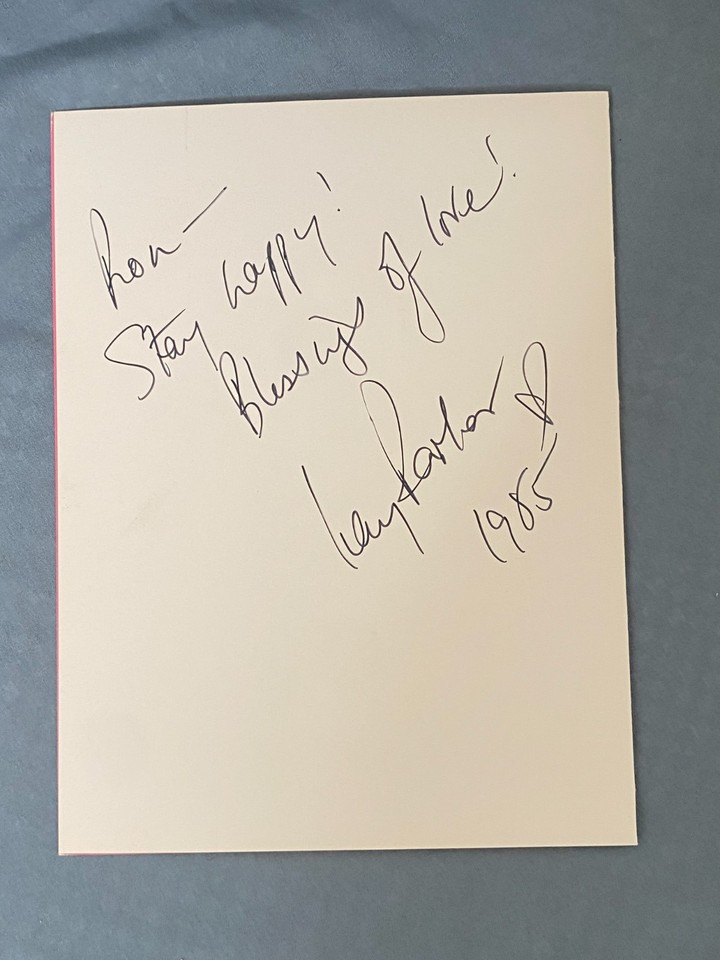 Ron—
Stay happy!
Blessings of love!
1985